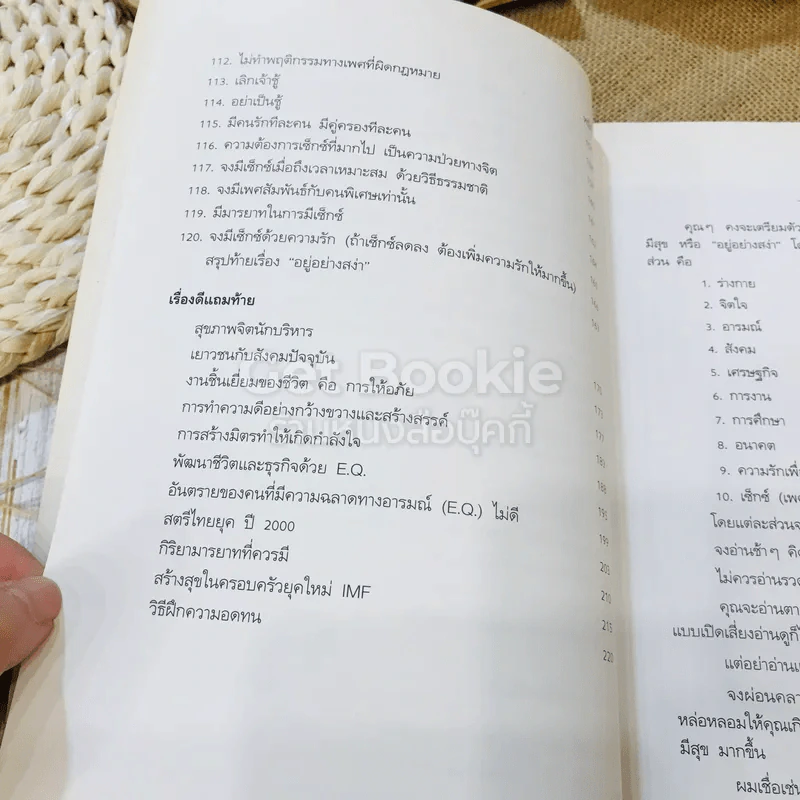 112. ไม่ทำพฤติกรรมทางเพศที่ผิดกฎหมาย
113. เลิกเจ้าชู้
114. อย่าเป็นชู้
115. มีคนรักทีละคน มีคู่ครองทีละคน
116. ความต้องการเซ็กซ์ที่มากไป เป็นความป่วยทางจิต
117. จงมีเซ็กซ์เมื่อถึงเวลาเหมาะสม ด้วยวิธีธรรมชาติ
118. จงมีเพศสัมพันธ์กับคนพิเศษเท่านั้น
119. มีมารยาทในการมีเซ็กซ์
120. จงมีเซ็กซ์ด้วยความรัก (ถ้าเซ็กซ์ลดลง ต้องเพิ่มความรักให้มากขึ้น)
สรุปท้ายเรื่อง "อยู่อย่างสง่า"
เรื่องดีแถมท้าย
สุขภาพจิตนักบริหาร
เยาวชนกับสังคมปัจจุบัน
งานชิ้นเยี่ยมของชีวิต คือ การให้อภัย
การทำความดีอย่างกว้างขวางและสร้างสรรค์
การสร้างมิตรทำให้เกิดกำลังใจ
พัฒนาชีวิตและธุรกิจด้วย E.Q.
อันตรายของคนที่มีความฉลาดทางอารมณ์ (E.Q.) ไม่ดี
สตรีไทยยุค ปี 2000
กิริยามารยาทที่ควรมี
สร้างสุขในครอบครัวยุคใหม่ IMF
วิธีฝึกความอดทน
188
193
199
203
210
215
220
Get Bookie
ร้านหนังสือบุ๊คกี้
คุณๆ คงจะเตรียมตัว
มีสุข หรือ "อยู่อย่างสง่า"
ส่วน คือ
1. ร่างกาย
2. จิตใจ
3. อารมณ์
4. สังคม
5. เศรษฐกิจ
6. การงาน
7. การศึกษา
8. อนาคต
9. ความรักเพื่
10. เซ็กซ์ (เพศ
โดยแต่ละส่วนจ
จงอ่านช้าๆ คิด
ไม่ควรอ่านรวด
คุณจะอ่านตา
แบบเปิดเสี่ยงอ่านดูก็ไ
แต่อย่าอ่านเ
จงผ่อนคลา
หล่อหลอมให้คุณเกิ
มีสุข มากขึ้น
ผมเชื่อเช่น